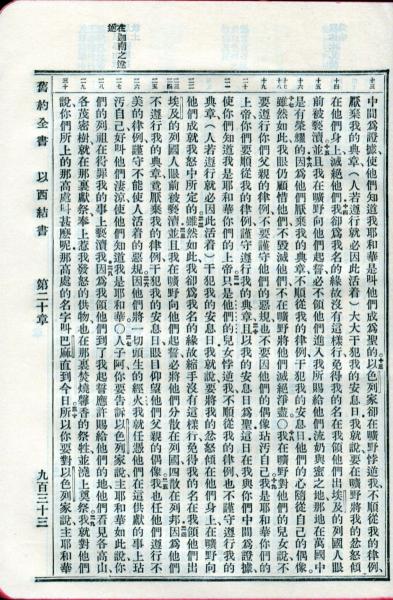 中間爲證據使他們知道我耶和華是叫他們成爲聖的以色列家卻在曠野悖逆我不順從我的律例、
厭棄我的典章（人若遵行就必因此活着）大大干犯我的安息日我就說要在曠野將我的忿怒傾
在他們身上滅絕他們我卻爲我名的緣故沒有這樣行免得我的名在我領他們出埃及的列國人眼
前被褻瀆並且我在曠野向他們起誓必不領他們進入我所賜給他們流奶與蜜之地那地在萬國中
是有榮耀的因爲他們厭棄我的典章不順從我的律例干犯我的安息日他們的心隨從自己的偶像。
雖然如此我眼仍顧惜他們不毀滅他們不在曠野將他們滅絕淨盡〇我在曠野對他們的兒女說不
要遵行你們父親的律例不要謹守他們的惡規也不要因他們的偶像玷污自己我是耶和華你們的
上帝你們要順從我的律例謹守遵行我的典章且以我的安息日爲聖這日在我與你們中間爲證據
使你們知道我是耶和華你們的上帝只是他們的兒女悖逆我不順從我的律例也不謹守遵行我的
典章（人若遵行就必因此活着）干犯我的安息日我就說要將我的忿怒傾在他們身上在曠野向
他們成就我怒中所定的雖然如此我卻爲我名的緣故縮手沒有這樣行免得我的名在我領他們出
埃及的列國人眼前被褻瀆並且我在曠野向他們起誓必將他們分散在列國四散在列邦因爲他們
不遵行我的典章竟厭棄我的律例干犯我的安息日眼目仰望他們父親的偶像我也任他們遵行不
美的律例謹守不能使人活着的惡規因他們將一切頭生的經火我就任憑他們在這供獻的事上玷
污自己好叫他們淒涼使他們知道我是耶和華〇人子阿你要告訴以色列家說主耶和華如此說你
們的列祖在得罪我的事上褻瀆我因爲我領他們到了我起誓應許賜給他們的地他們看見各高山
各茂密樹就在那裏獻祭奉上惹我發怒的供物也在那裏焚燒馨香的祭牲並澆上奠祭我就對他們
說你們所上的那高處叫甚麽呢那高處的名字叫巴麻直到今日所以你要對以色列家說主耶和華
舊約全書　以西結書　第二十章　九百三十三